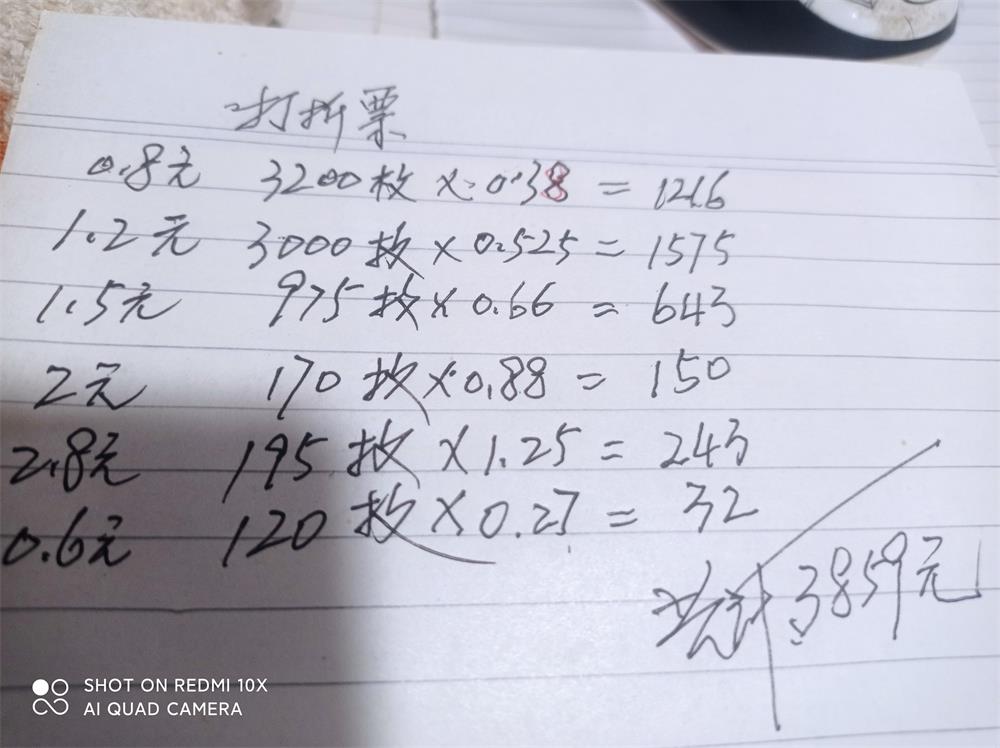 打折票
0.8元 3200枚×0.38=1216
1.2元 3000枚×0.525=1575
1.5元 975枚×0.66=643
2元 170枚×0.88=150
2.8元 195枚×1.25=243
0.6元 120枚×0.27=32
共计3859元
SHOT ON REDMI 10X
AI QUAD CAMERA